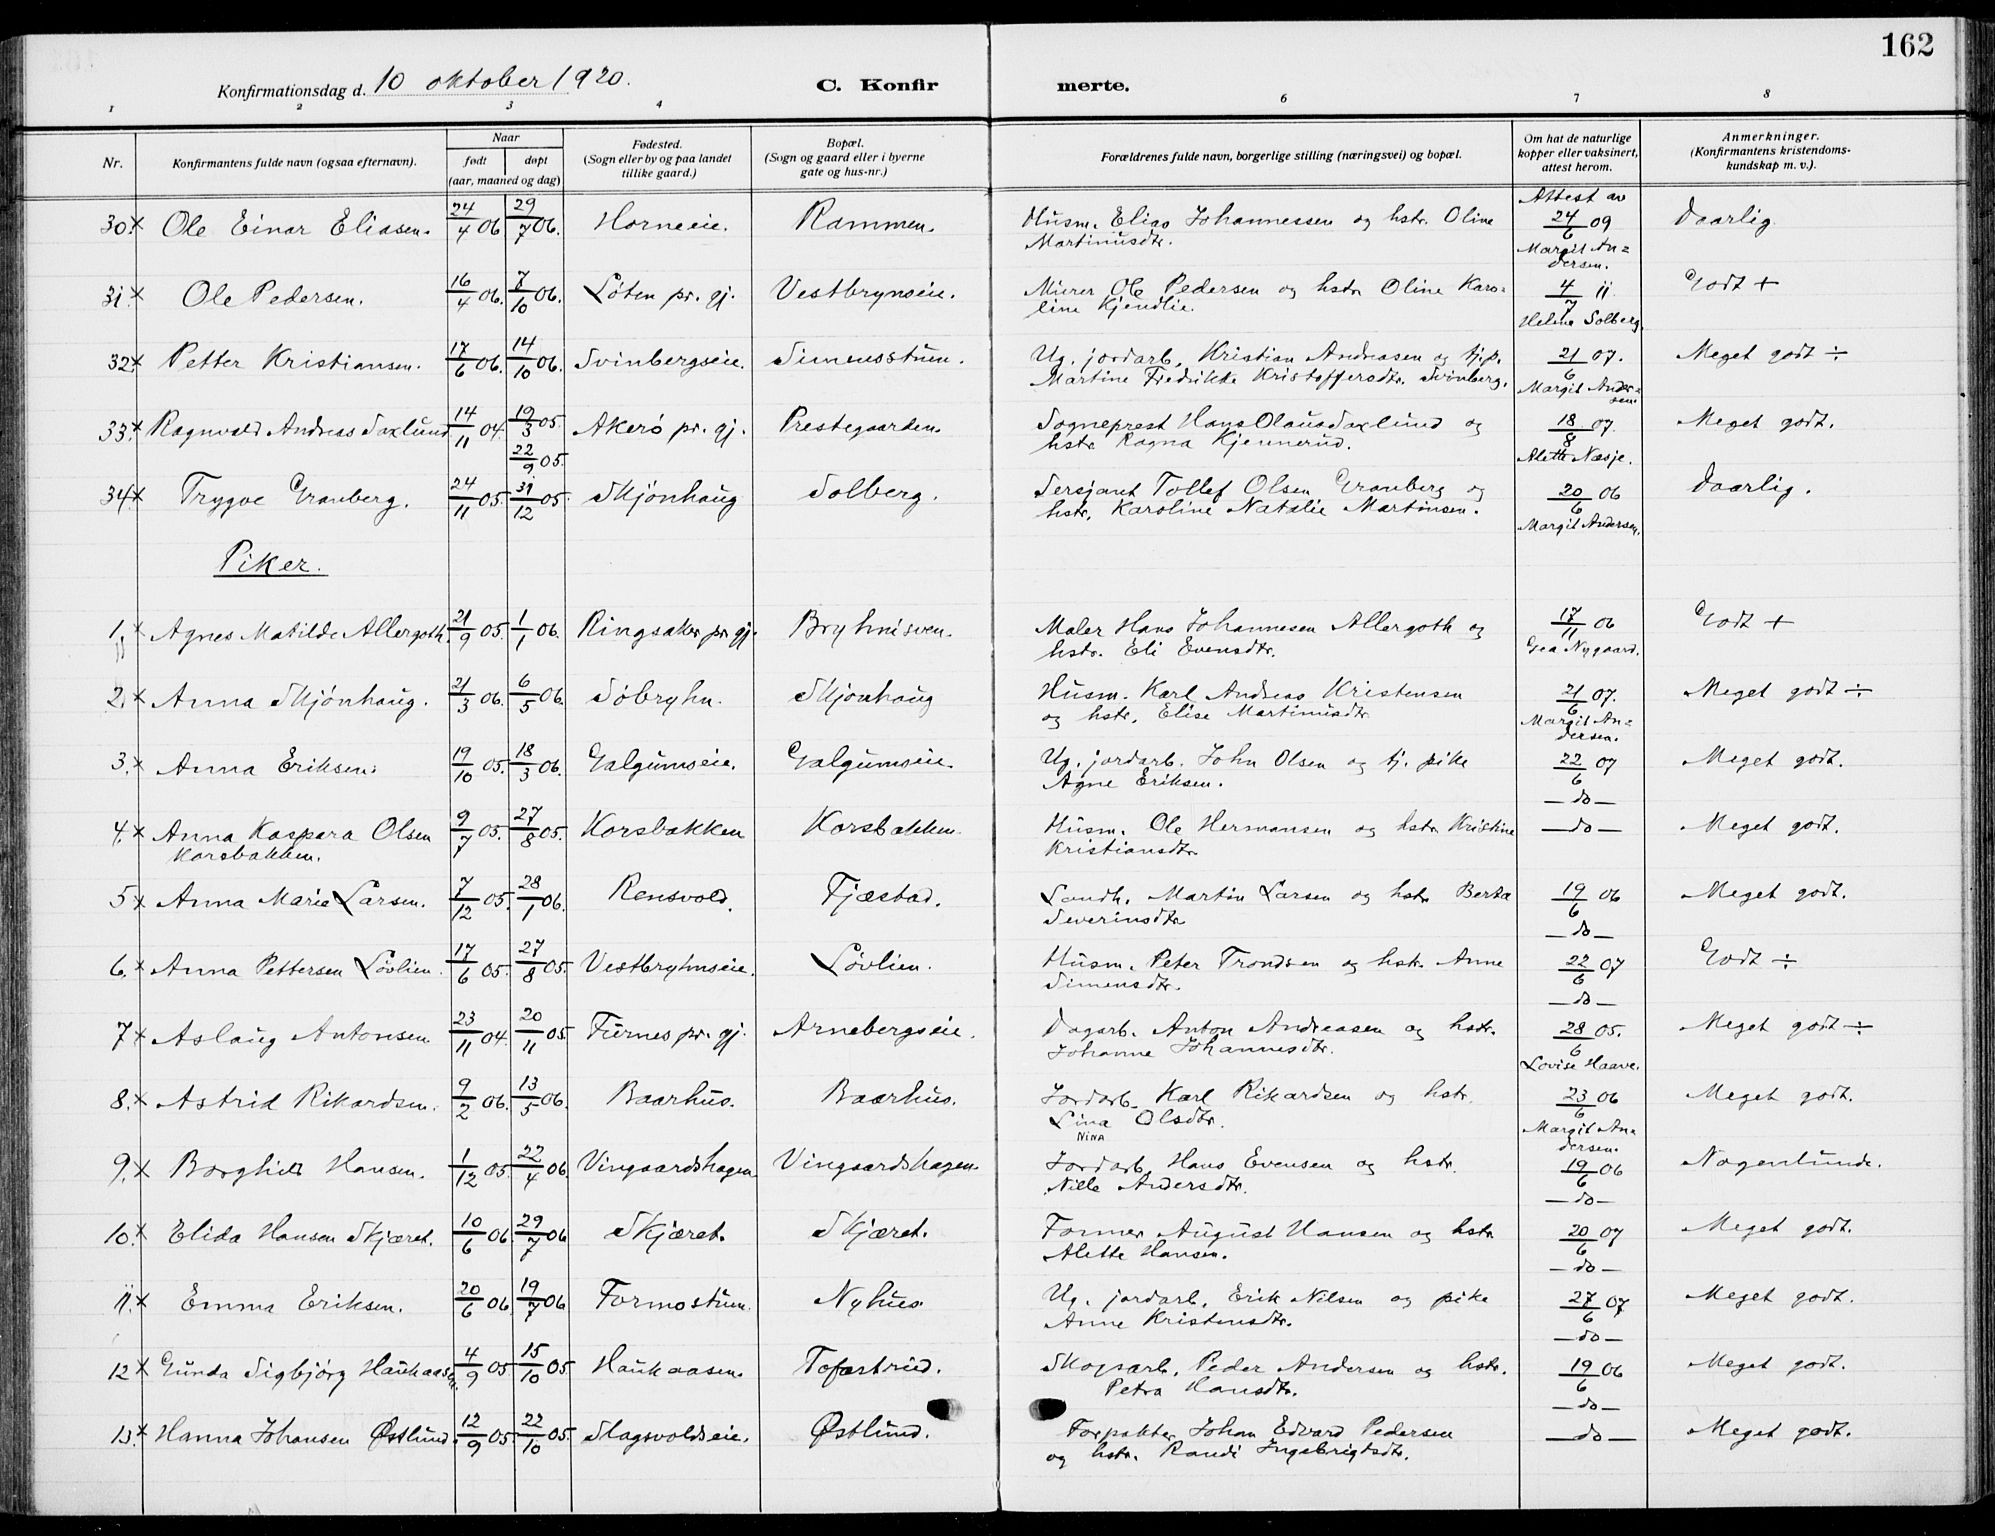 162
Konfirmationsdag d. 10 oktober 1920.
C. Konfirmerte.
1 2 3 4 6 7 8
Nr. Konfirmantens fulde navn (ogsaa efternavn). Naar født døpt (aar, maaned og dag) Fødested. (Sogn eller by og paa landet tillike gaard.) Bopæl. (Sogn og gaard eller i byerne gate og hus-nr.) Forældrenes fulde navn, borgerlige stilling (næringsvei) og bopæl. Om hat de naturlige kopper eller vaksinert, attest herom. Anmerkninger. (Konfirmantens kristendomskundskap m. v.).
30. x Ole Einar Eliasen. 24/4 06 29/7 06. Horneeie. Rammen. Husm. Elias Johannessen og hstr. Oline Martinusdtr. Attest av 24/6 09 Margit Andersen. Daarlig.
31. x Ole Pedersen. 16/4 06. 7/10 06. Løten pr. gj. Vestbrynseie. Murer Ole Pedersen og hstr. Oline Karoline Kjendlie. 4/7 11 Helene Solberg. Godt +
32. x Petter Kristiansen. 17/6 06. 14/10 06. Svinbergseie. Simensstuen. Ug. jordarb. Kristian Andreasen og tj.p. Martine Fredrikke Kristoffersdtr. Svinberg. 21/6 07. Margit Andersen. Meget godt ÷
33. x Ragnvald Andreas Saxlund 14/11 04. 19/3 05. 22/9 05. Akerø pr. gj. Prestegaarden. Sogneprest Hans Olaus Saxlund og hstr. Ragna Kjennerud. 18/8 07. Alette Næsje. Meget godt.
34. x Trygve Granberg. 24/11 05. 31/12 05. Skjønhaug Solberg. Sersjant Tollef Olsen Granberg og hstr. Karoline Natalie Martinsen. 20/6 06 Margit Andersen. Daarlig.
Piker.
1. x Agnes Matilde Allergoth 21/9 05. 1/1 06. Ringsaker pr. gj. Bryhnisven. Maler Hans Johannesen Allergoth og hstr. Eli Evensdtr. 17/11 06 Gea Nygaard. Godt +
2. x Anna Skjønhaug. 21/3 06. 6/5 06. Søbryhn. Skjønhaug Husm. Karl Andreas Kristensen og hstr. Elise Martinusdtr. 21/6 07. Margit Andersen. Meget godt ÷
3. x Anna Eriksen. 19/10 05. 18/3 06. Galgumseie. Galgumseie. Ug. jordarb. John Olsen og tj. pike Agne Eriksen. 22/6 07 —do— Meget godt.
4. x Anna Kaspara Olsen Korsbakken. 9/7 05. 27/8 05. Korsbakken Korsbakken. Husm. Ole Hermansen og hstr. Kristine Kristiansdtr. —do— Meget godt.
5 x Anna Marie Larsen. 7/12 05. 28/1 06. Rensvold. Fjæstad. Landh. Martin Larsen og hstr. Berta Severinsdtr. 19/6 06 —do— Meget godt.
6. x Anna Pettersen Løvlien. 17/6 05. 27/8 05. Vestbryhnseie. Løvlien. Husm. Peter Trondsen og hstr. Anne Simensdtr. 22/6 07 —do— Godt ÷
7 x Aslaug Antonsen 23/11 04. 20/11 05. Furnes pr. gj. Arnebergseie. Dagarb. Anton Andreasen og hstr. Johanne Johannesdtr. 28/6 05. Lovise Haave. Meget godt ÷
8. x Astrid Rikardsen. 9/2 06. 13/5 06. Baarhus. Baarhus. Jordarb. Karl Rikardsen og hstr. Lina Olsdtr. NINA 23/6 06 Margit Andersen. Meget godt.
9. x Borghild Hansen. 1/12 05. 22/4 06. Vingaardshagen Vingaardshagen. Jordarb. Hans Evensen og hstr. Nille Andersdtr. 19/6 06 —do— Nogenlunde.
10. x Elida Hansen Skjæret. 10/6 06. 29/7 06 Skjæret. Skjæret. Former August Hansen og hstr. Alette Hansen. 20/6 07 —do— Meget godt.
11. x Emma Eriksen. 20/6 06. 19/7 06 Formostuen. Nyhus. Ug. jordarb. Erik Nilsen og pike Anne Kristensdtr. 27/6 07 —do— Meget godt.
12 x Gunda Sigbjørg Haukaasen. 4/9 05. 15/10 05. Haukaasen. Tofastrud. Skogsarb. Peder Andersen og hstr. Petra Hansdtr. 19/6 06 —do— Meget godt.
13. x Hanna Johansen Østlund. 12/9 05. 22/10 05. Slagsvoldseie. Østlund. Forpakter Johan Edvard Pedersen og hstr. Randi Ingebrigtsdtr. —do— Meget godt.